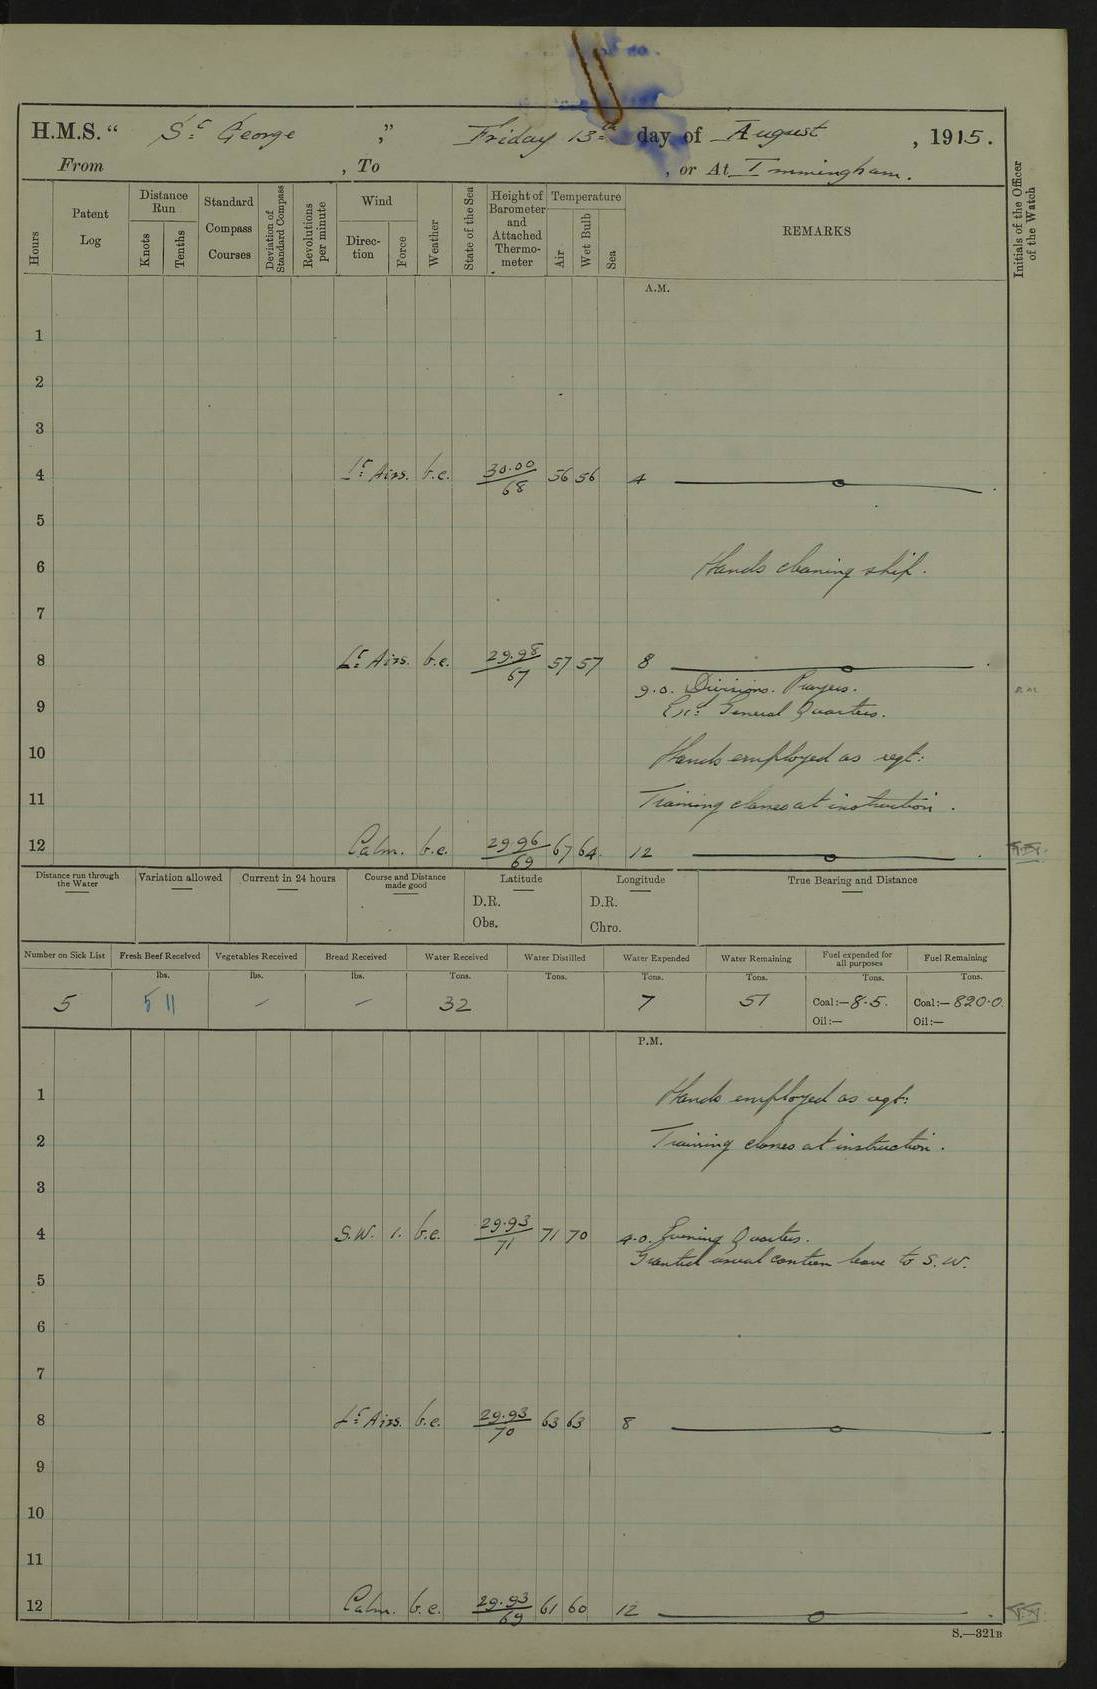 H.M.S. “ St George ” Friday 13th day of August , 1915.
From , To , or At Immingham.
Hours
Patent Log
Distance Run
Knots
Tenths
Standard Compass Courses
Deviation of Standard Compass
Revolutions per minute
Wind
Direction
Force
Weather
State of the Sea
Height of Barometer and Attached Thermometer
Temperature
Air
Wet Bulb
Sea
REMARKS
Initials of the Officer of the Watch
A.M.
1
2
3
4 Lt Airs. b.c. 30.00/68 56 56 4
5
6 Hands cleaning ship.
7
8 Lt Airs. b.c. 29.98/67 57 57 8
9.0. Divisions. Prayers.
9 Exd General Quarters.
10 Hands employed as reqt:
11 Training classes at instruction.
12 Calm. b.c. 29.96/69 67 64. 12
Distance run through the Water
Variation allowed
Current in 24 hours
Course and Distance made good
Latitude
D.R.
Obs.
Longitude
D.R.
Chro.
True Bearing and Distance
Number on Sick List Fresh Beef Received Vegetables Received Bread Received Water Received Water Distilled Water Expended Water Remaining Fuel expended for all purposes Fuel Remaining
lbs. lbs. lbs. Tons. Tons. Tons. Tons. Tons. Tons.
5 511 – – 32 7 51 Coal:—8.5. Coal:—820.0.
Oil:— Oil:—
P.M.
1 Hands employed as reqt:
2 Training classes at instruction.
3
4 S.W. 1. b.c. 29.93/71 71 70 4.0. Evening Quarters.
Granted usual canteen leave to S.W.
5
6
7
8 Lt Airs. b.c. 29.93/70 63 63 8
9
10
11
12 Calm. b.c. 29.93/69 61 60 12
S.—321B